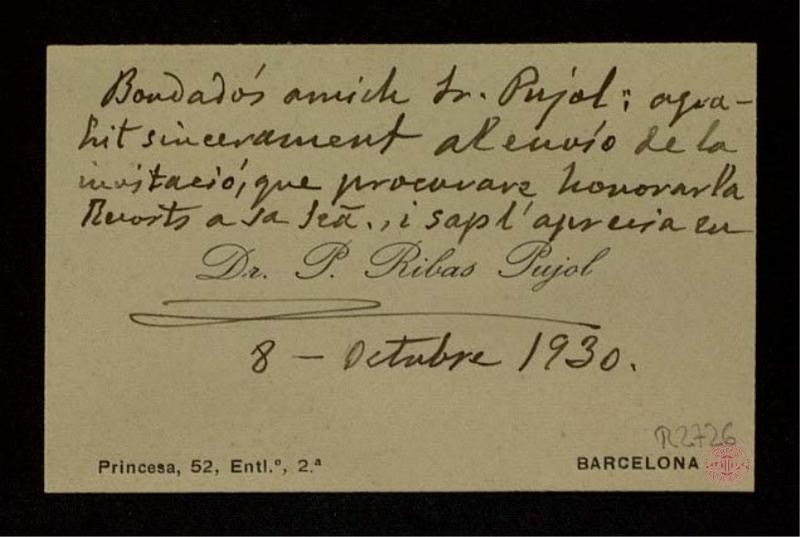 Bondadós amich Sr. Pujol: agra-
hit sincerament al envío de la
invitació, que procurare honorarla
a sa Sra., i sap l'aprecia en
Dr. P. Ribas Pujol
8 - Octubre 1930.
R2726
Princesa, 52, Entl.º, 2.ª
BARCELONA